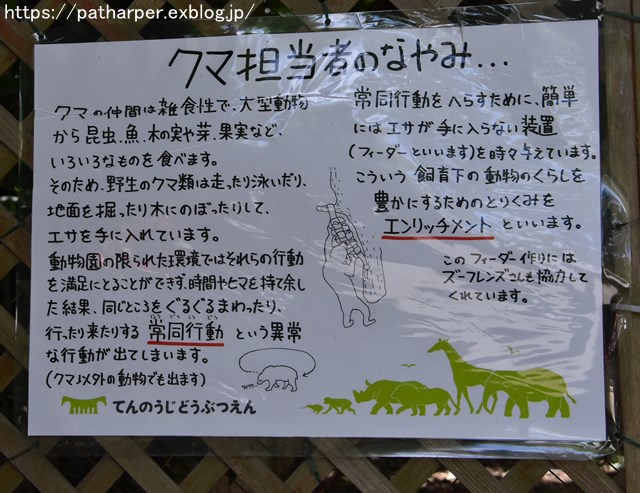 https://patharper.exblog.jp/
クマ担当者のなやみ...
クマの仲間は雑食性で、大型動物
から昆虫、魚、木の実や芽、果実など、
いろいろなものを食べます。
そのため、野生のクマ類は走ったり泳いだり、
地面を掘ったり木にのぼったりして、
エサを手に入れています。
動物園の限られた環境ではそれらの行動
を満足にとることができず、時間やヒマを持て余し
た結果、同じところをぐるぐるまわったり、
行ったり来たりする 常同行動 という異常
な行動が出てしまいます。
(クマノメタトの動物でも出ます)
常同行動をへらすために、簡単
にはエサが手に入らない装置
(フィーダーといいます)を時々与えています。
こういう 飼育下の動物のくらしを
豊かにするためのとりくみを
エンリッチメント といいます。
このフィーダー作りには
ズーフレンズさんも協力して
くれています。
てんのうじどうぶつえん